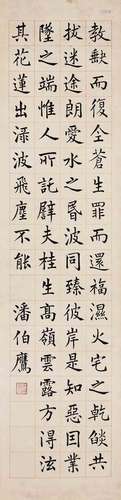 教缺而復全蒼生罪而還福濕火宅之乾燄共
拔迷途朗愛水之昬波同臻彼岸是知惡囙業
墜之端惟人所託譬夫桂生高嶺雲露方得泫
其花蓮出淥波飛塵不能 潘伯鷹